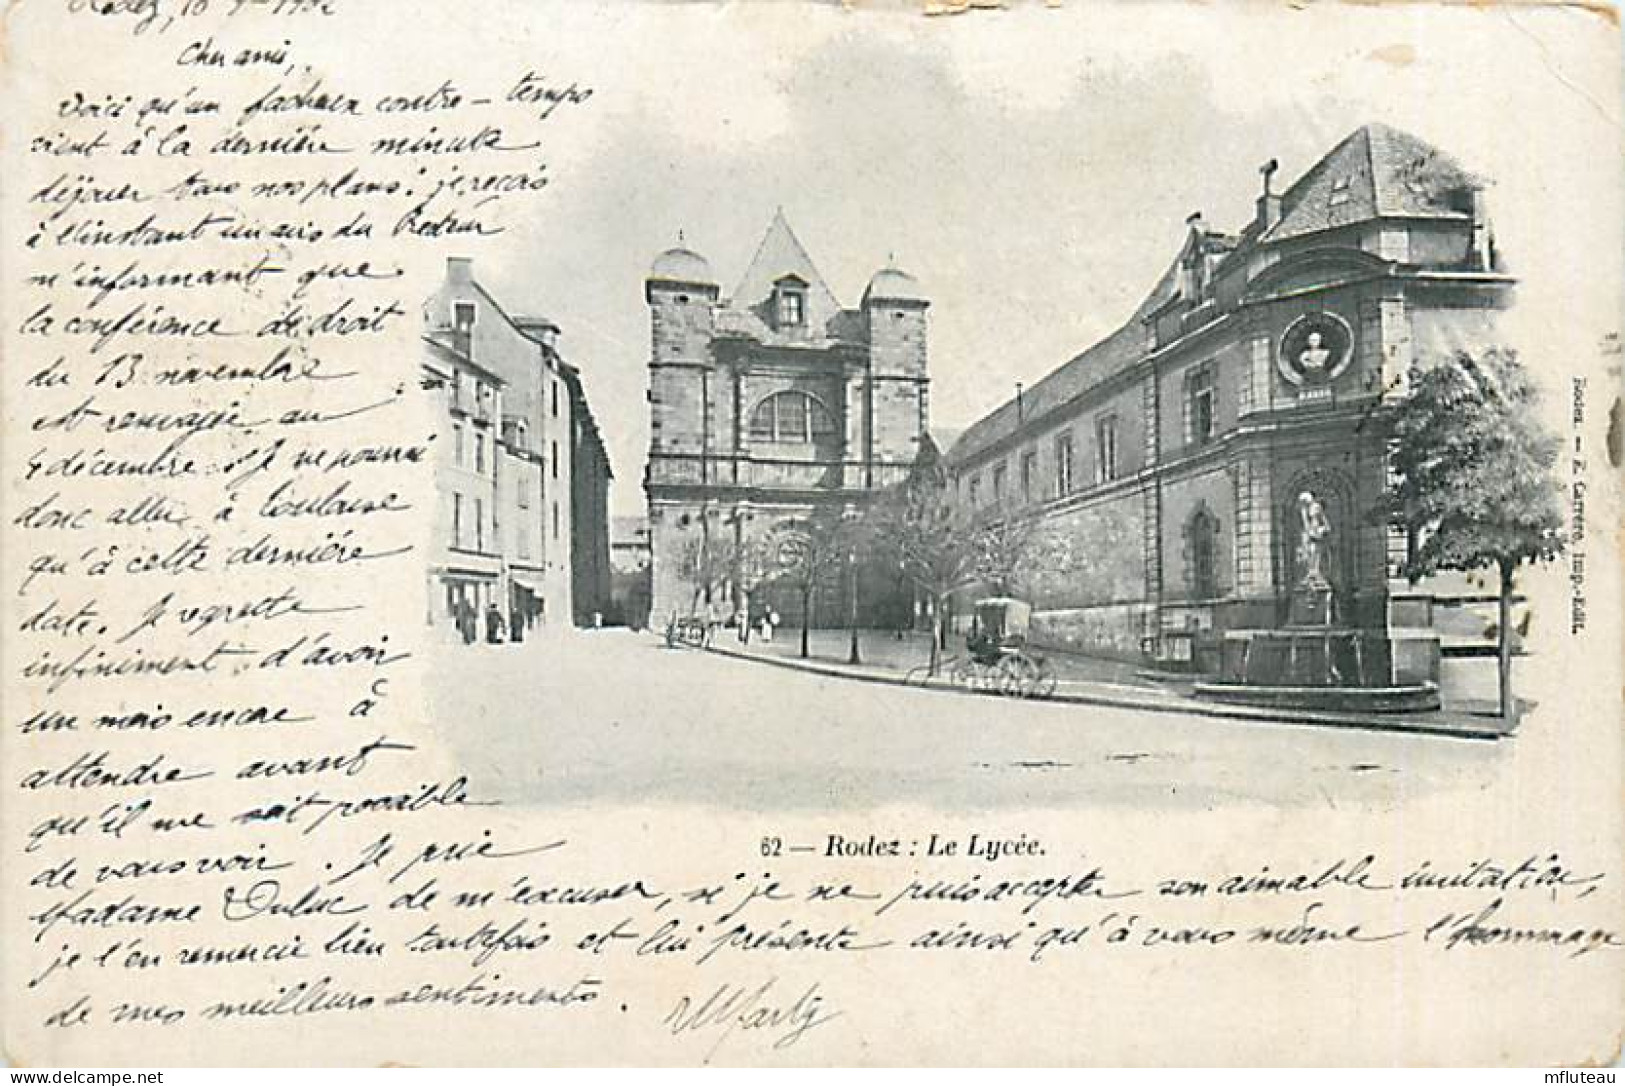 Rodez, 10 9bre 1902
Cher ami,
Voici qu'un facheux contre-temps
vient à la dernière minute
déjouer tous nos plans : je reçois
à l'instant un avis du Recteur
m'informant que
la conférence de droit
du 13 novembre
est renvoyée au
4 décembre. Je ne pourrai
donc aller à Toulouse
qu'à cette dernière
date. Je regrette
infiniment d'avoir
un mois encore à
attendre avant
qu'il me soit possible
de vous voir. Je prie
Madame Duluc de m'excuser, si je ne puis accepter son aimable invitation,
je l'en remercie bien toutefois et lui présente ainsi qu'à vous même l'hommage
de mes meilleurs sentiments.
62 — Rodez : Le Lycée.
Rodez — E. Carrère, Imp.-Édit.
mfluteau